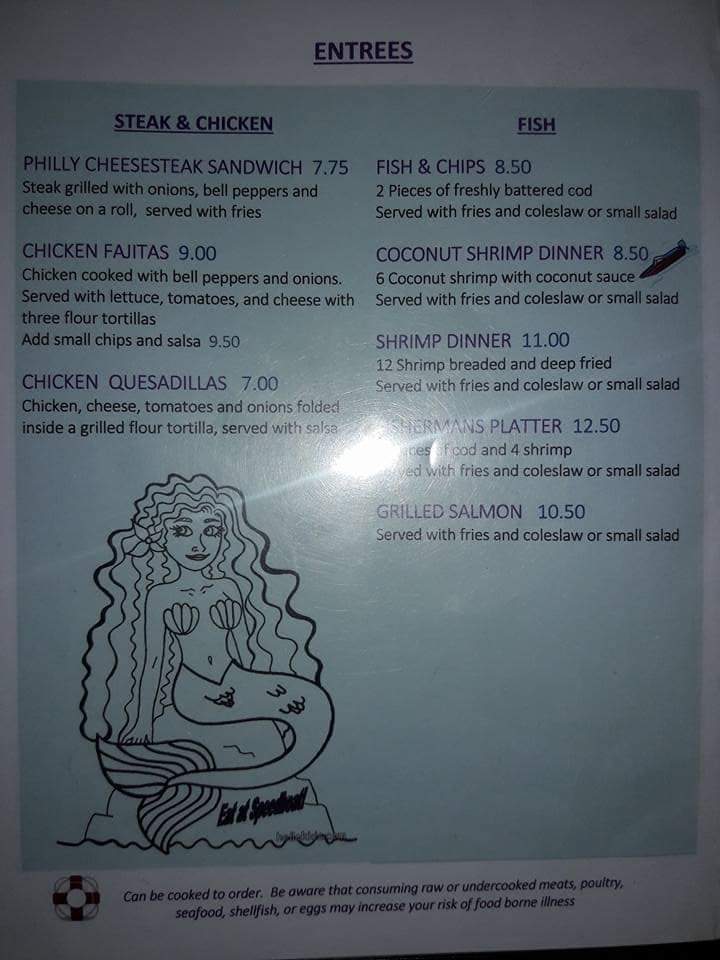 ENTREES
STEAK & CHICKEN
PHILLY CHEESESTEAK SANDWICH 7.75
Steak grilled with onions, bell peppers and
cheese on a roll, served with fries
CHICKEN FAJITAS 9.00
Chicken cooked with bell peppers and onions.
Served with lettuce, tomatoes, and cheese with
three flour tortillas
Add small chips and salsa 9.50
CHICKEN QUESADILLAS 7.00
Chicken, cheese, tomatoes and onions folded
inside a grilled flour tortilla, served with salsa
Eat at Speedboat!
FISH
FISH & CHIPS 8.50
2 Pieces of freshly battered cod
Served with fries and coleslaw or small salad
COCONUT SHRIMP DINNER 8.50
6 Coconut shrimp with coconut sauce
Served with fries and coleslaw or small salad
SHRIMP DINNER 11.00
12 Shrimp breaded and deep fried
Served with fries and coleslaw or small salad
SHERMANS PLATTER 12.50
of cod and 4 shrimp
with fries and coleslaw or small salad
GRILLED SALMON 10.50
Served with fries and coleslaw or small salad
Can be cooked to order. Be aware that consuming raw or undercooked meats, poultry,
seafood, shellfish, or eggs may increase your risk of food borne illness